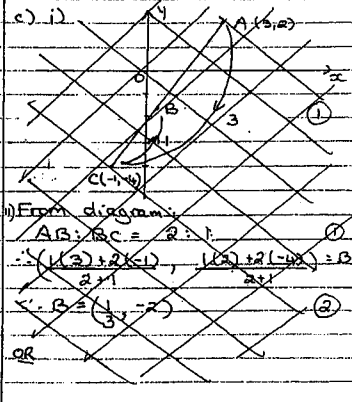 c) i)
y
A (3,2)
O
x
B
①
-1
3
C(-1,-4)
ii) From diagram,
AB : BC = 2 : 1 ①
∴ (1(3)+2(-1) / 2+1 , 1(2)+2(-4) / 2+1) = B
∴ B = (1/3, -2) ②
OR